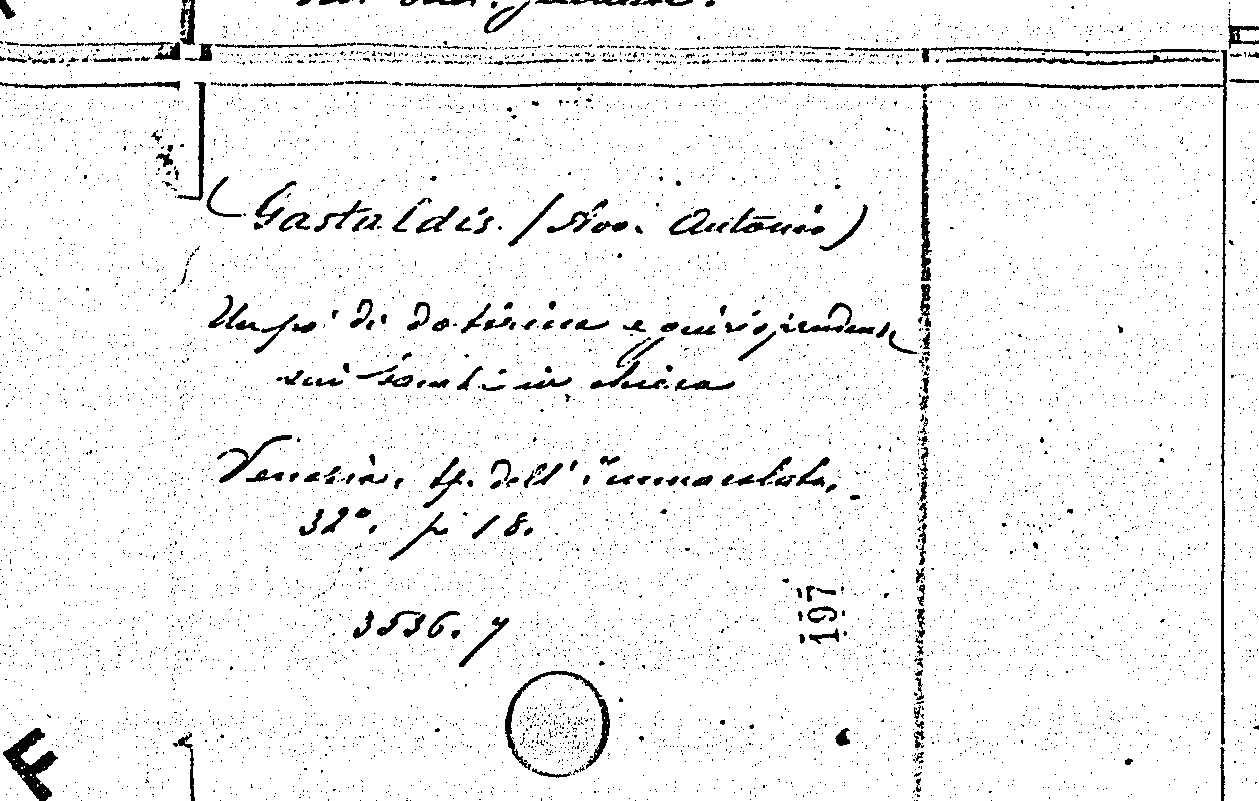 Gastaldis. (Avv. Antonio)
Un po' di dottrina e giurisprudenz
sui
Venezia, tip. dell' Immacolata,
32°. p 18.
3536. 7
197
F